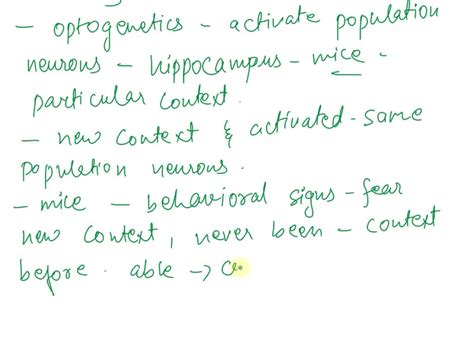 - optogenetics - activate population
neurons - hippocampus - mice -
particular context.
- new context & activated - same
population neurons.
- mice - behavioral signs - fear
new context, never been - context
before. able →